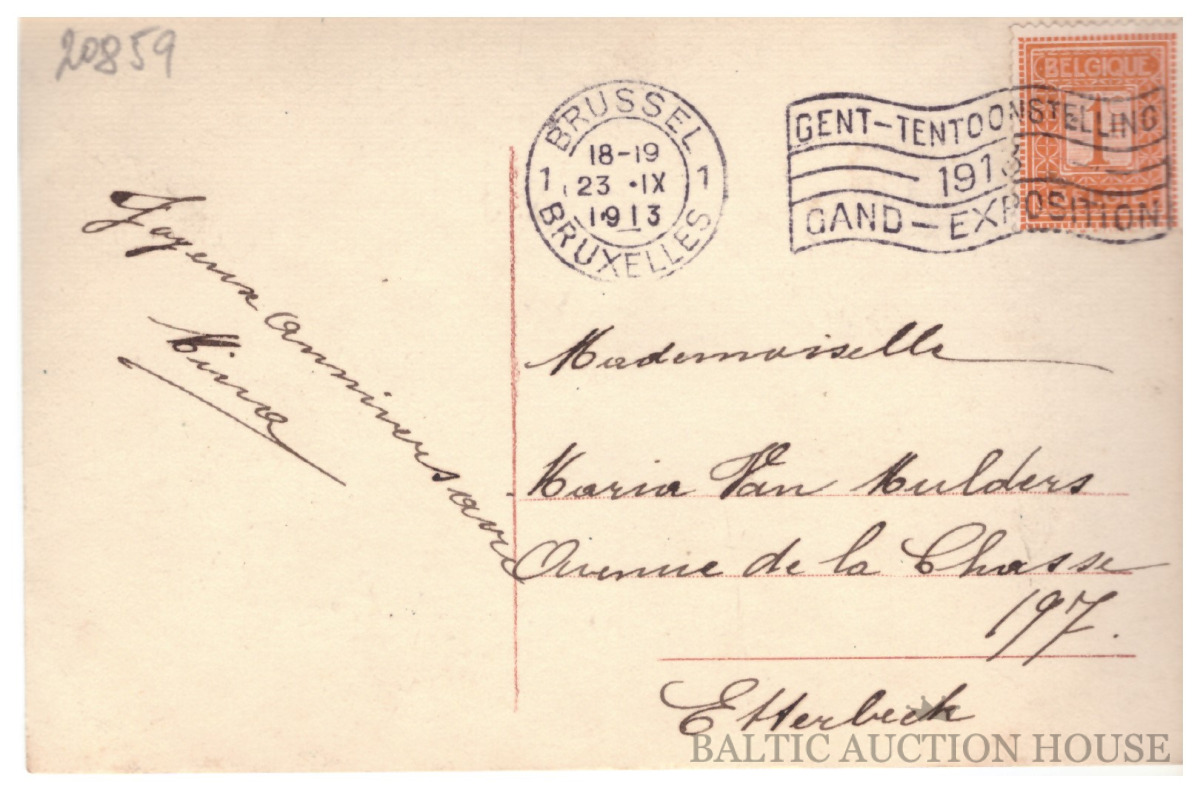 20859
BRUSSEL
1 18-19 1
23 ·IX
1913
BRUXELLES
GENT-TENTOONSTELLING
1913
GAND-EXPOSITION
BELGIQUE
1
BELGIË
Joyeux anniversaire
Mina
Mademoiselle
Maria Van Mulders
Avenue de la Chasse
197.
Etterbeek
BALTIC AUCTION HOUSE